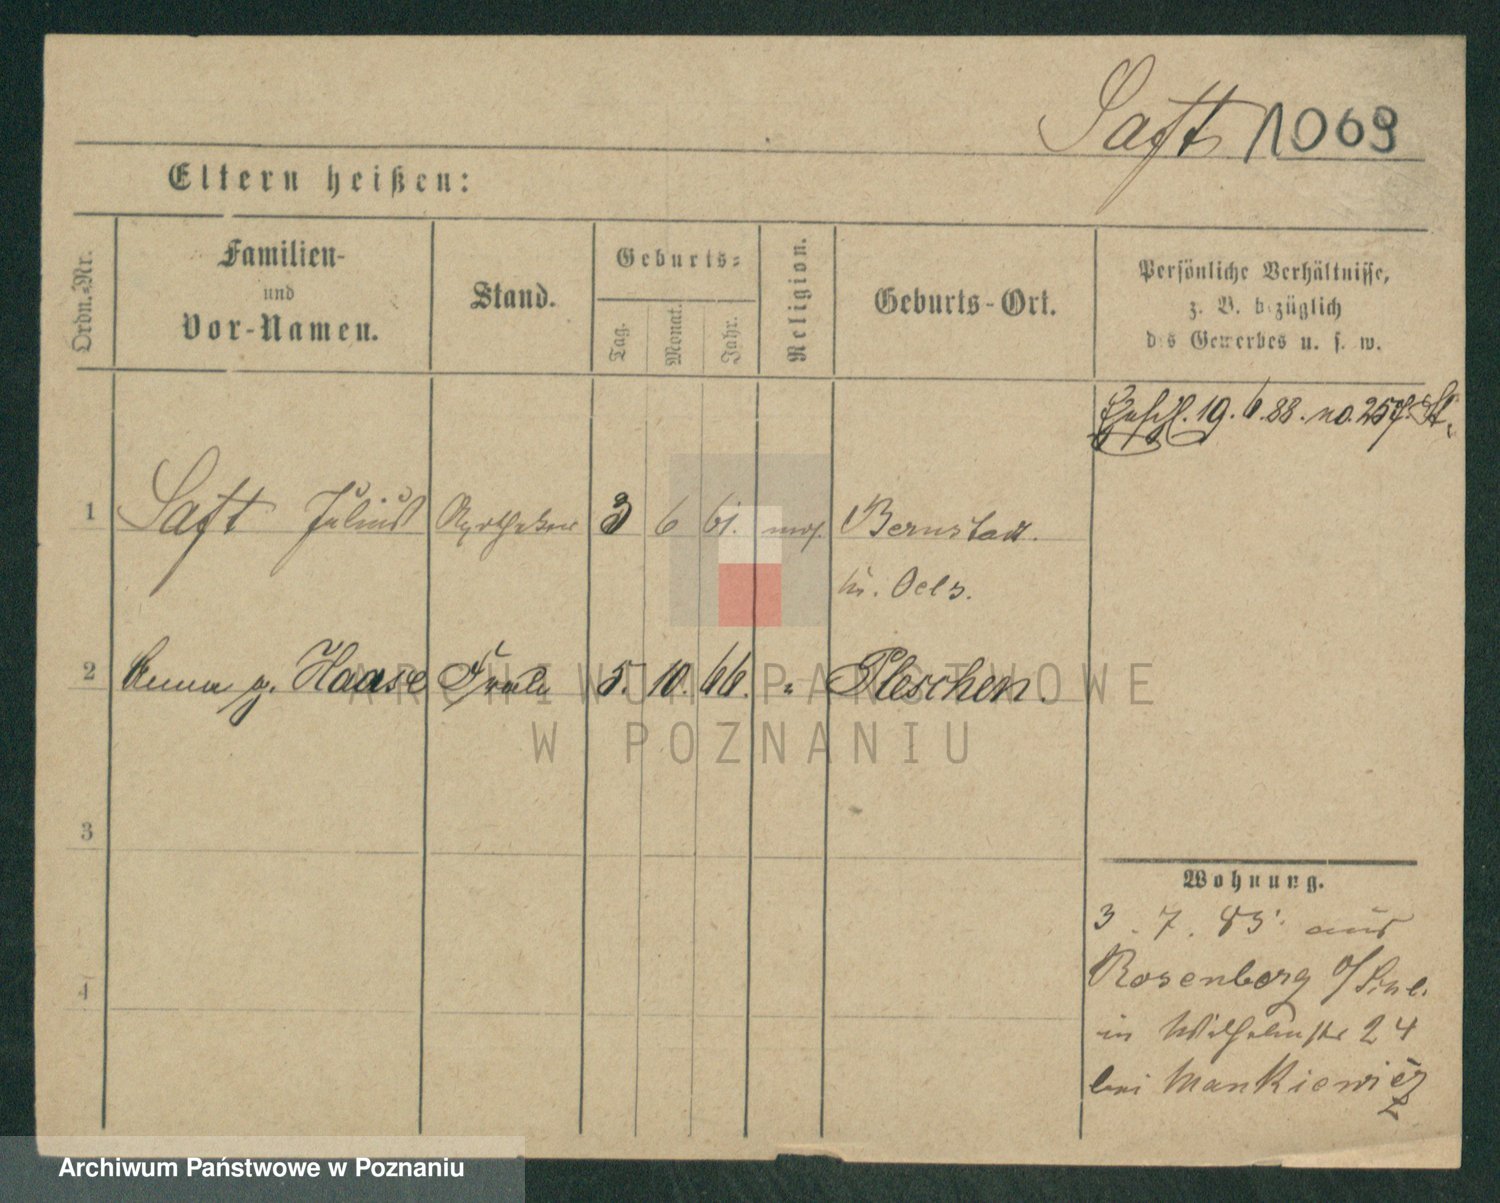 Saft 1069
Eltern heißen:
Ordn.-Nr.
Familien-
und
Vor-Namen.
Stand.
Geburts-
Tag.
Monat.
Jahr.
Religion.
Geburts-Ort.
Persönliche Verhältnisse,
z. B. bezüglich
des Gewerbes u. s. w.
19. 6. 88. no. 257. St.
1 Saft Julius Apotheker 3 6 61. mos. Bernstadt.
Kr. Oels.
2 Anna g. Haase Frau 5. 10. 66. " Pleschen.
3
4
Wohnung.
3. 7. 83. aus
Rosenberg O/Schl.
in Wilhelmstr 24
bei Mankiewicz
ARCHIWUM PAŃSTWOWE
W POZNANIU
Archiwum Państwowe w Poznaniu